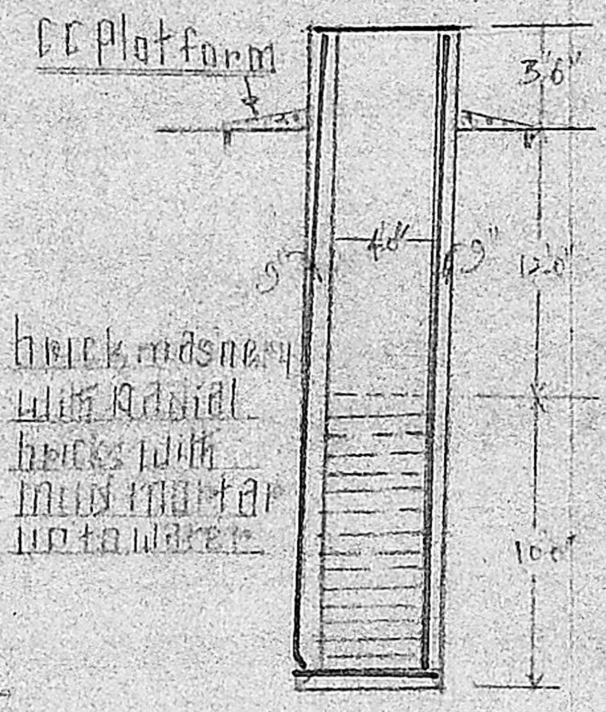 CC Platform
3'6"
9"
4'0"
9"
12'0"
brick masnery
with Radial
bricks with
mud mortar
upto water
10'0"